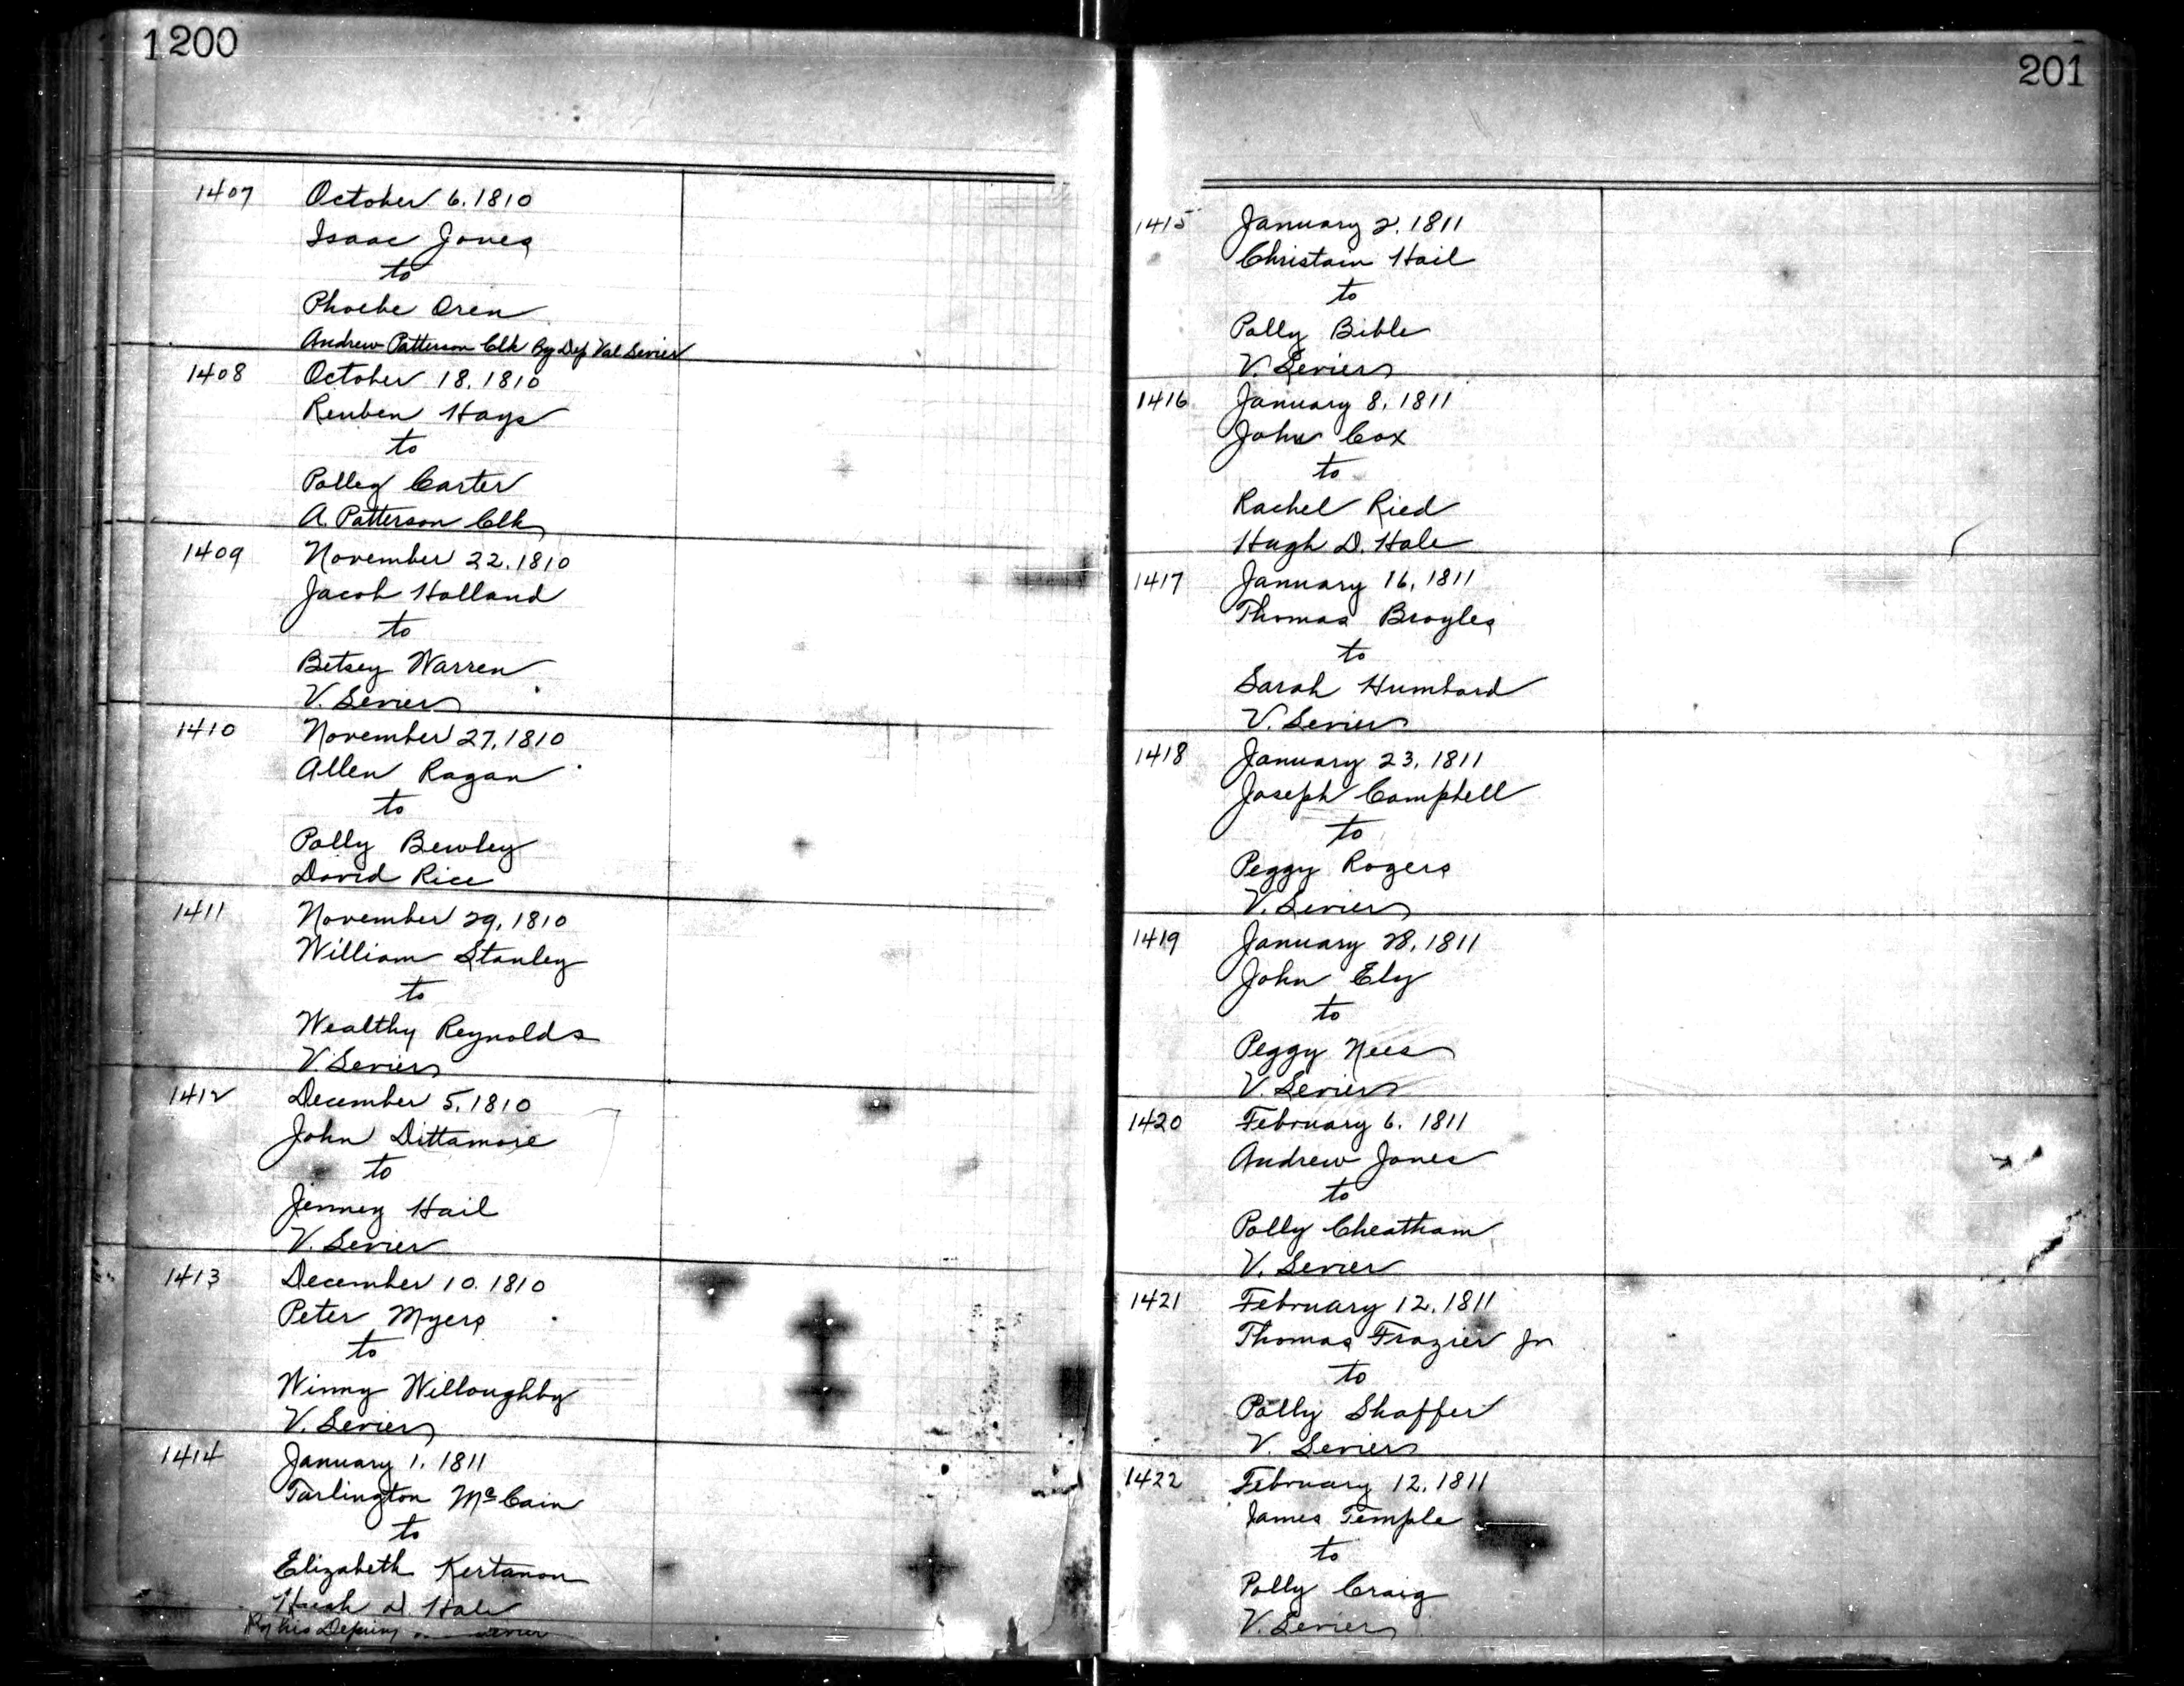 1200
1407 October 6, 1810
Isaac Jones
to
Phoebe Oren
Andrew Patterson Clk By Dep Val Sevier
1408 October 18, 1810
Reuben Hays
to
Polley Carter
A. Patterson Clk
1409 November 22, 1810
Jacob Holland
to
Betsey Warren
V. Sevier
1410 November 27, 1810
Allen Ragan
to
Polly Bewley
David Rice
1411 November 29, 1810
William Stanley
to
Wealthy Reynolds
V. Sevier
1412 December 5, 1810
John Dittamore
to
Jenney Hail
V. Sevier
1413 December 10. 1810
Peter Myers
to
Winny Willoughby
V. Sevier
1414 January 1, 1811
Tarlington McCain
to
Elizabeth Kertanon
Hugh D. Hale
By his Deputy Sevier
201
1415 January 2, 1811
Christain Hail
to
Polly Bible
V. Sevier
1416 January 8, 1811
John Cox
to
Rachel Ried
Hugh D. Hale
1417 January 16, 1811
Thomas Broyles
to
Sarah Humbard
V. Sevier
1418 January 23, 1811
Joseph Campbell
to
Peggy Rogers
V. Sevier
1419 January 28, 1811
John Ely
to
Peggy Nees
V. Sevier
1420 February 6. 1811
Andrew Jones
to
Polly Cheatham
V. Sevier
1421 February 12, 1811
Thomas Frazier Jr
to
Polly Shaffer
V. Sevier
1422 February 12, 1811
James Temple
to
Polly Craig
V. Sevier